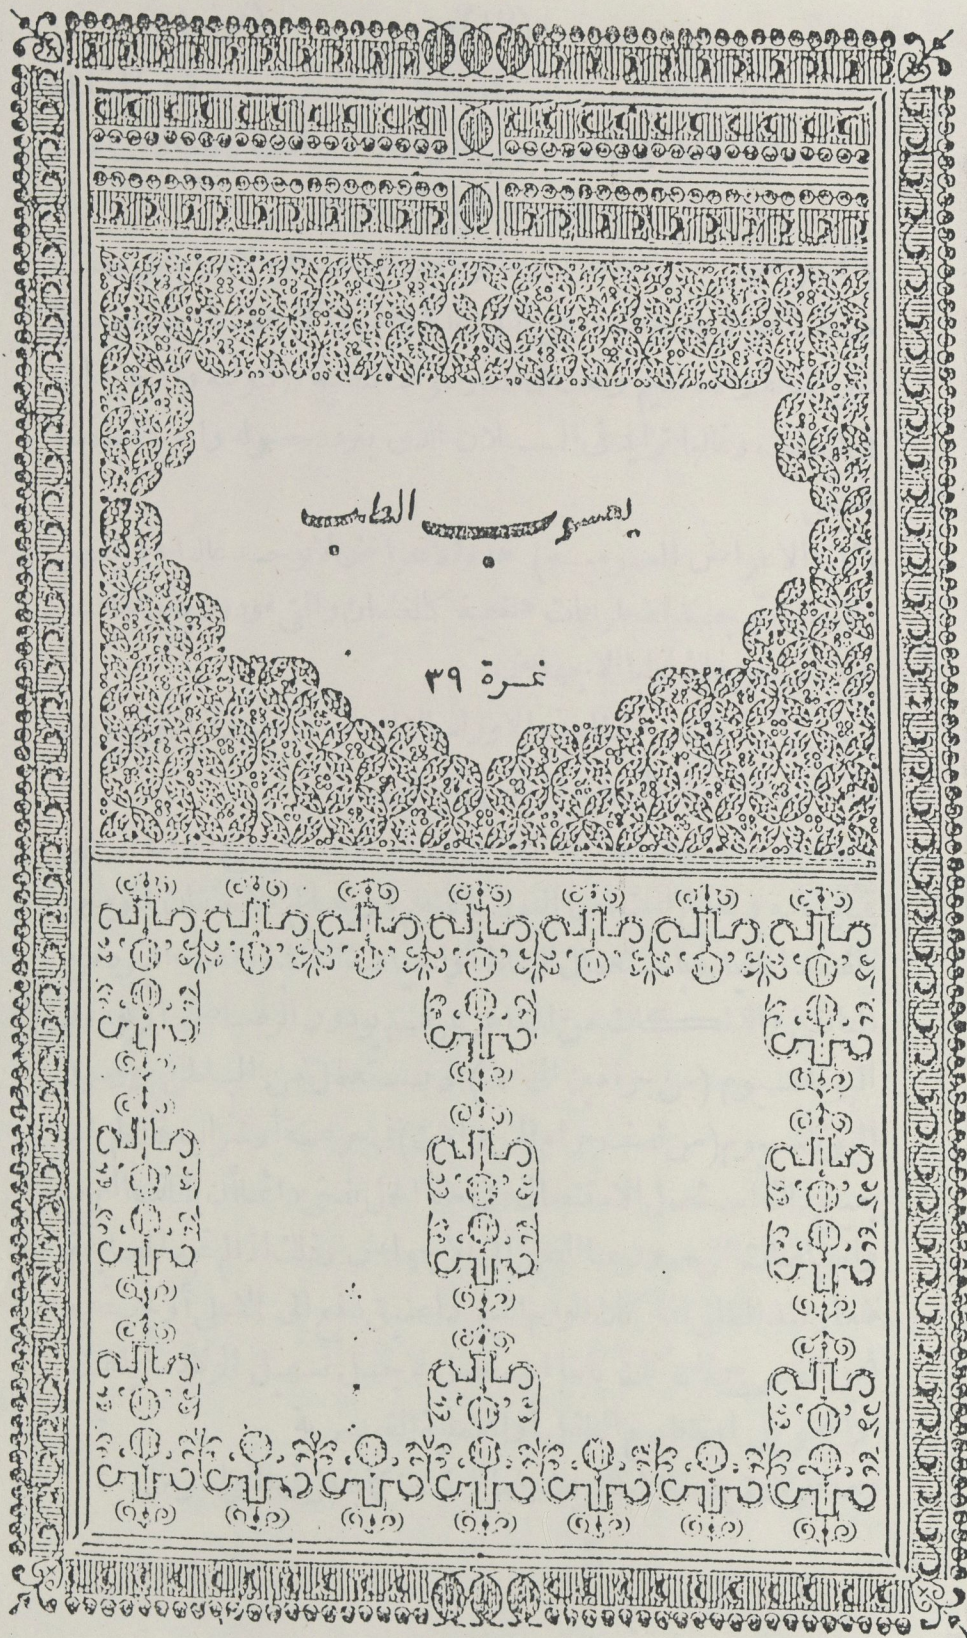 يعسوب الطب
نمرة ٣٩